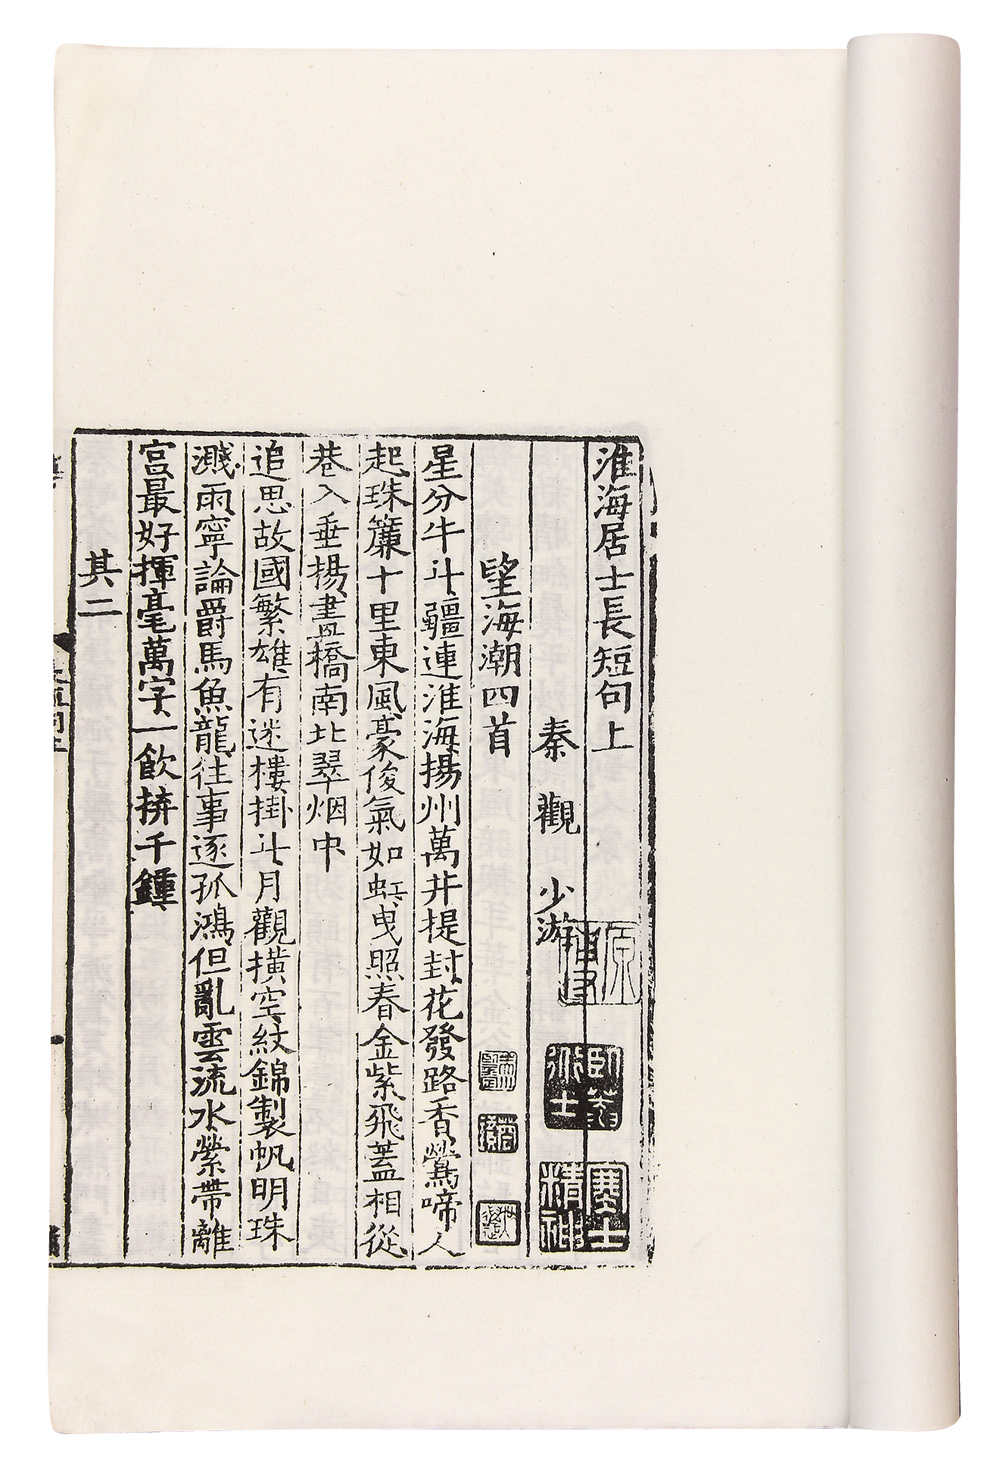 淮海居士長短句上
秦觀少游
望海潮四首
星分牛斗疆連淮海揚州萬井提封花發路香鶯啼人
起珠簾十里東風豪俊氣如虹曳照春金紫飛蓋相從
巷入垂楊畫橋南北翠烟中
追思故國繁雄有迷樓掛斗月觀橫空紋錦製帆明珠
濺雨寧論爵馬魚龍往事逐孤鴻但亂雲流水縈帶離
宮最好揮毫萬字一飲拚千鍾
其二
長短句上